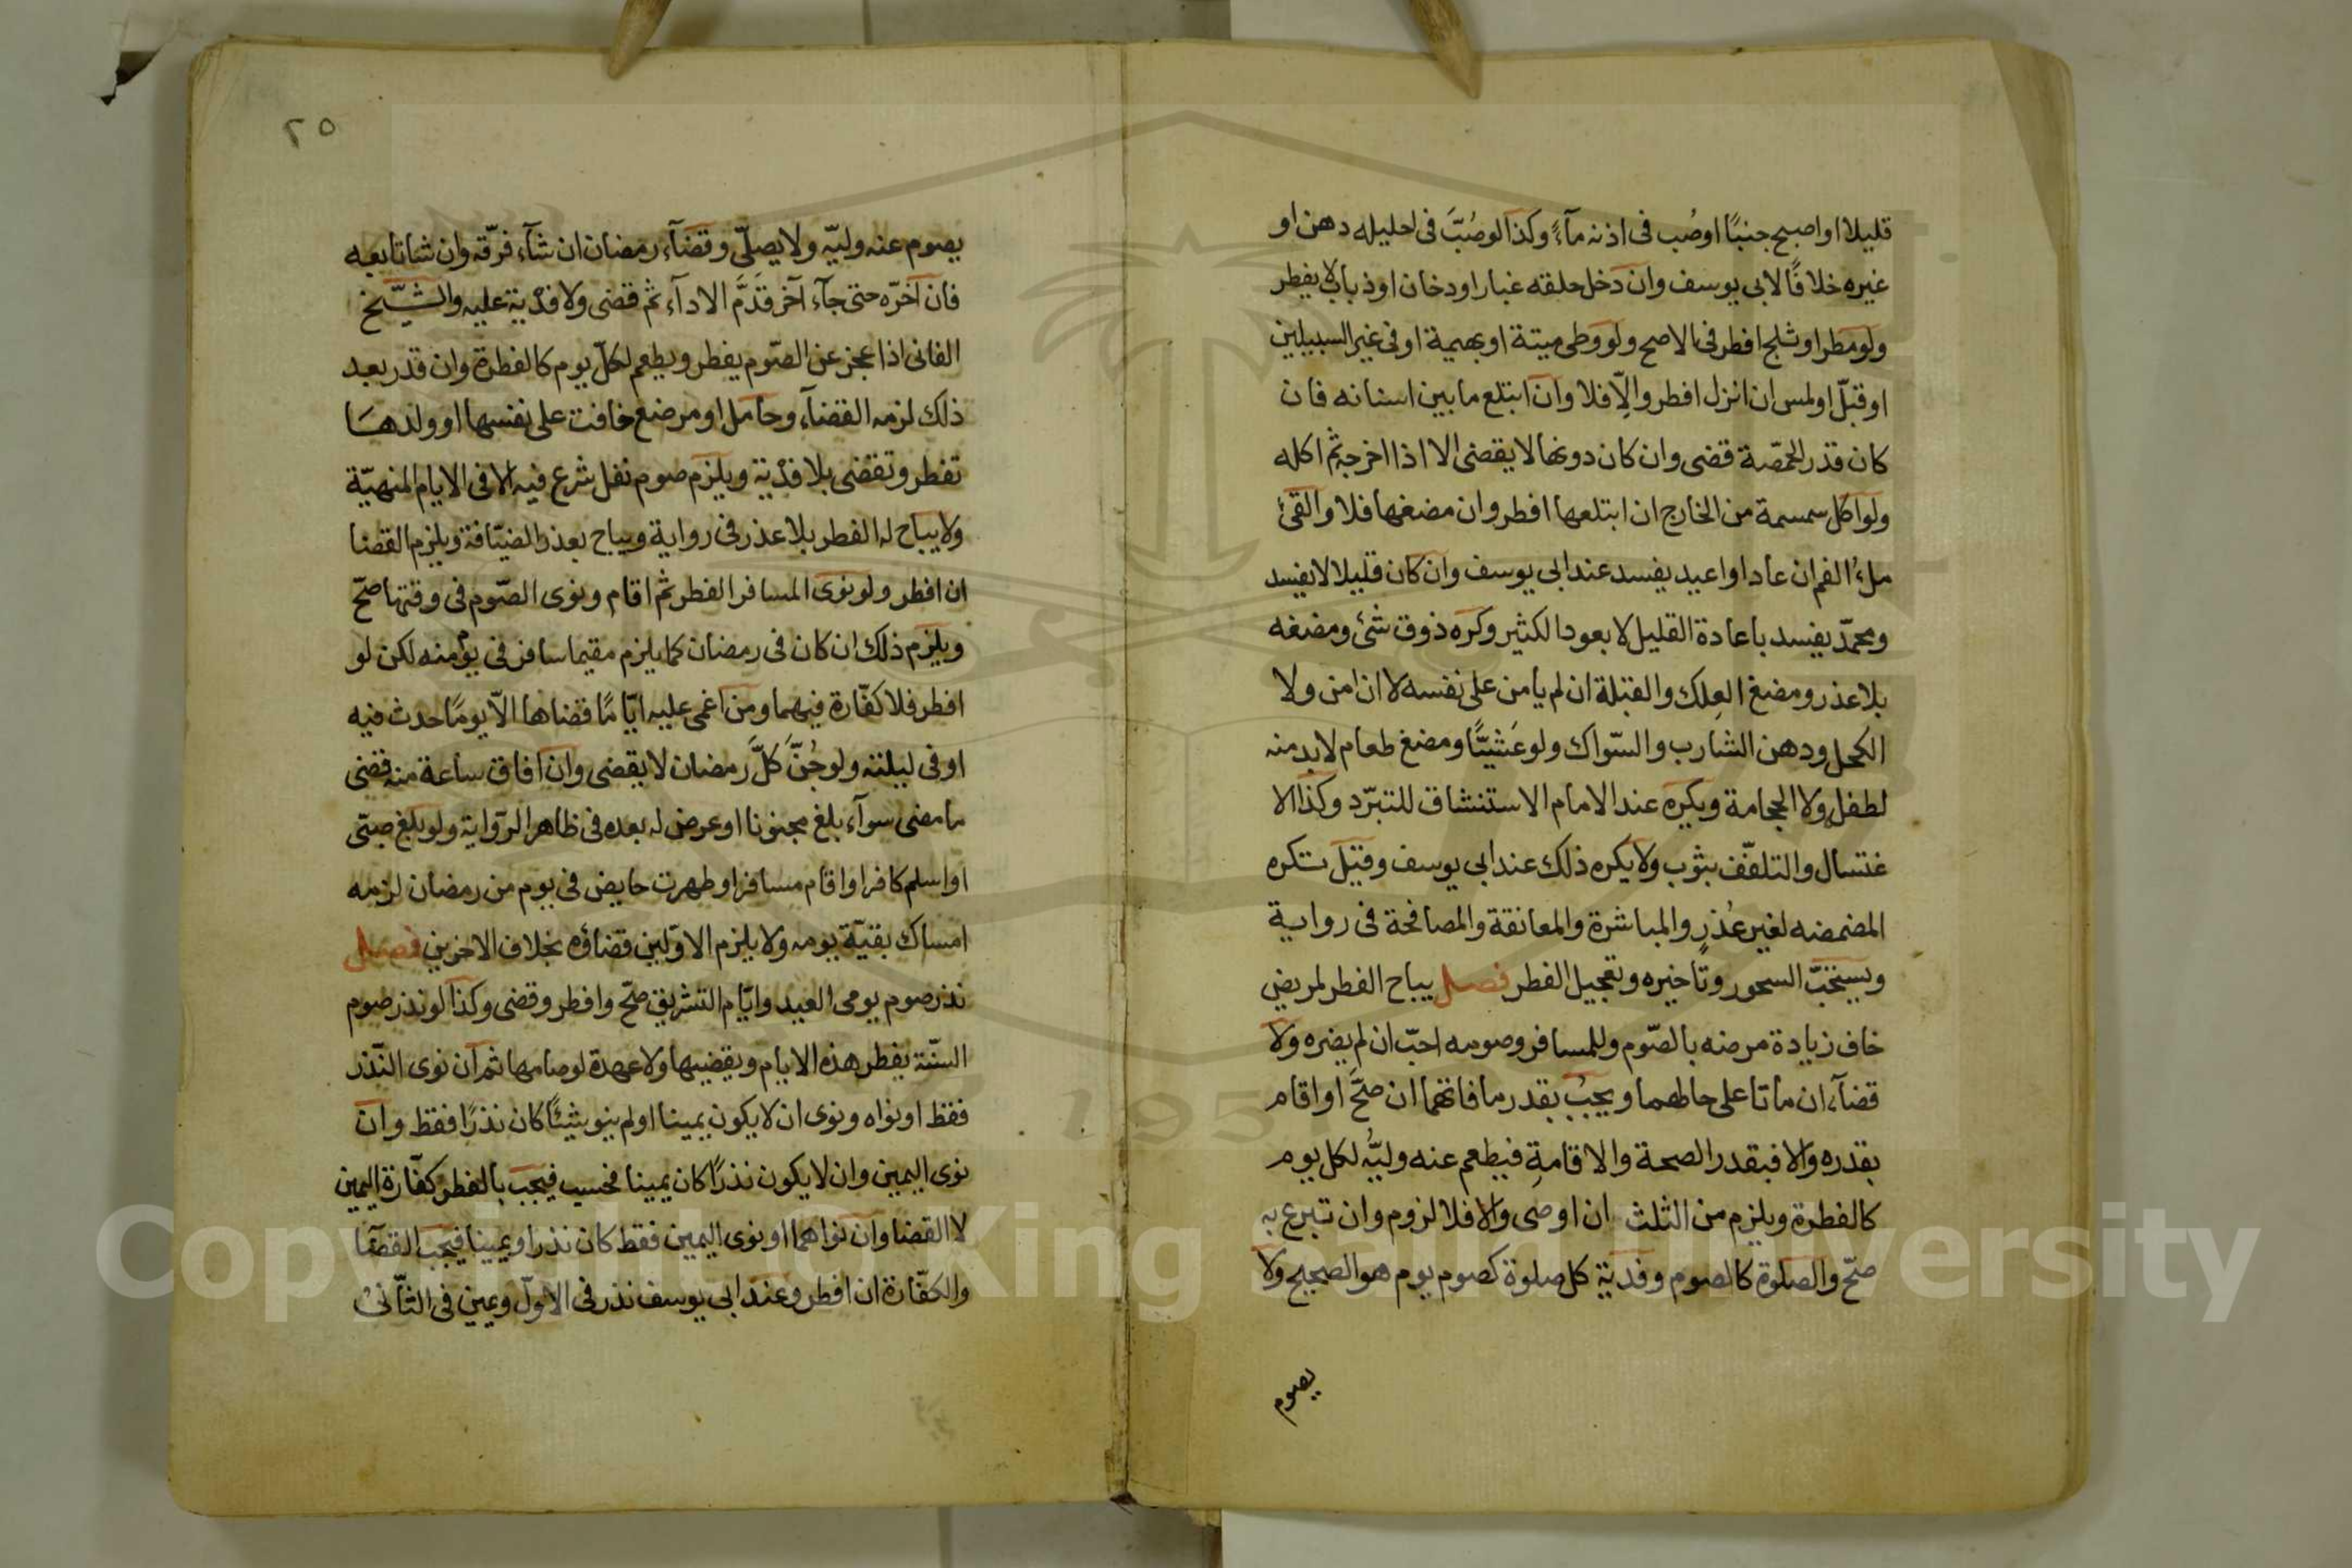 قليلا او اصبح جنبًا او صُب فى اذنه مآءً وكذا لو صُبَّ فى احليله دهن او
غيره خلافًا لابى يوسف وان دخل حلقه غبار او دخان او ذباب لا يفطر
ولو مطر او ثلج افطر فى الاصح ولو وطى ميتة او بهيمة او فى غير السبيلين
او قبّل او لمس ان انزل افطر والّا فلا وان ابتلع ما بين اسنانه فان
كان قدر الحمّصة قضى وان كان دونها لا يقضى الا اذا اخرجه ثم اكله
ولو اكل سمسمة من الخارج ان ابتلعها افطر وان مضغها فلا والقئ
ملءُ الفم ان عاد او اعيد يفسد عند ابى يوسف وان كان قليلا لا يفسد
ومحمّد يفسد باعادة القليل لا بعود الكثير وكره ذوق شئ ومضغه
بلا عذر ومضغ العِلك والقبلة ان لم يامن على نفسه لا ان امن ولا
الكحل ودهن الشارب والسّواك ولو عَشيًّا ومضغ طعام لا بد منه
لطفل ولا الحجامة ويكره عند الامام الاستنشاق للتبرّد وكذا الا
غتسال والتلفّف بثوب ولا يكره ذلك عند ابى يوسف وقيل تكره
المضمضه لغير عُذرٍ والمباشرة والمعانقة والمصافحة فى رواية
ويستحبّ السحور وتاخيره وتعجيل الفطر فصل يباح الفطر لمريض
خاف زيادة مرضه بالصّوم وللمسافر وصومه احبّ ان لم يضره ولا
قضآء ان ماتا على حالهما ويجبُ بقدر ما فاتهما ان صحَّ او اقام
بقدره والا فبقدر الصحة والاقامةِ فيطعم عنه وليُّه لكل يوم
كالفطرة ويلزم من الثلث ان اوصى والا فلا لزوم وان تبرع به
صحّ والصلوة كالصوم وفدية كل صلوة كصوم يوم هو الصحيح ولا
يصوم
٢٥
يصوم عنه وليّه ولا يصلّى وقضآء رمضان ان شآء فرّقه وان شا تابعه
فان اخّره حتى جآء آخر قدَّم الادآء ثم قضى ولا فدْية عليه والشّيخ
الفانى اذا عجز عن الصّوم يفطر ويطعم لكلّ يوم كالفطرة وان قدر بعد
ذلك لزمه القضآء وحامل او مرضع خافت على نفسها او ولدها
تفطر وتقضى بلا فدْية ويلزم صوم نفل شرع فيه الا فى الايام المنهيّة
ولا يباح له الفطر بلا عذر فى رواية ويباح بعذر الضيّافة ويلزم القضا
ان افطر ولو نوى المسافر الفطر ثم اقام ونوى الصّوم فى وقتها صحّ
ويلزم ذلك ان كان فى رمضان كما يلزم مقيما سافر فى يوم منه لكن لو
افطر فلا كفّارة فيهما ومن اغمى عليه ايّامًا قضاها الّا يومًا حدث فيه
او فى ليلته ولو جُنَّ كلَّ رمضان لا يقضى وان افاق ساعة منه قضى
ما مضى سوآء بلغ مجنونا او عرض له بعده فى ظاهر الرّواية ولو بلغ صبّى
او اسلم كافر او اقام مسافر او طهرت حايض فى يوم من رمضان لزمه
امساك بقيّة يومه ولا يلزم الاوّلين قضاؤه بخلاف الاخرين فصل
نذر صوم يومى العيد وايّام التشريق صحّ وافطر وقضى وكذا لو نذر صوم
السنّة يفطر هذه الايام ويقضيها ولا عهدة لو صامها ثم ان نوى النّذر
فقط او نواه ونوى ان لا يكون يمينا او لم ينو شيئًا كان نذرًا فقط وان
نوى اليمين وان لا يكون نذرًا كان يمينا فحسب فيجب بالفطر كفّارة اليمين
لا القضا وان نواهما او نوى اليمين فقط كان نذرا ويمينا فيجب القضآ
والكفّارة ان افطر وعند ابى يوسف نذر فى الاوّل ويمين فى الثّانى
Copyright © King Saud University
195